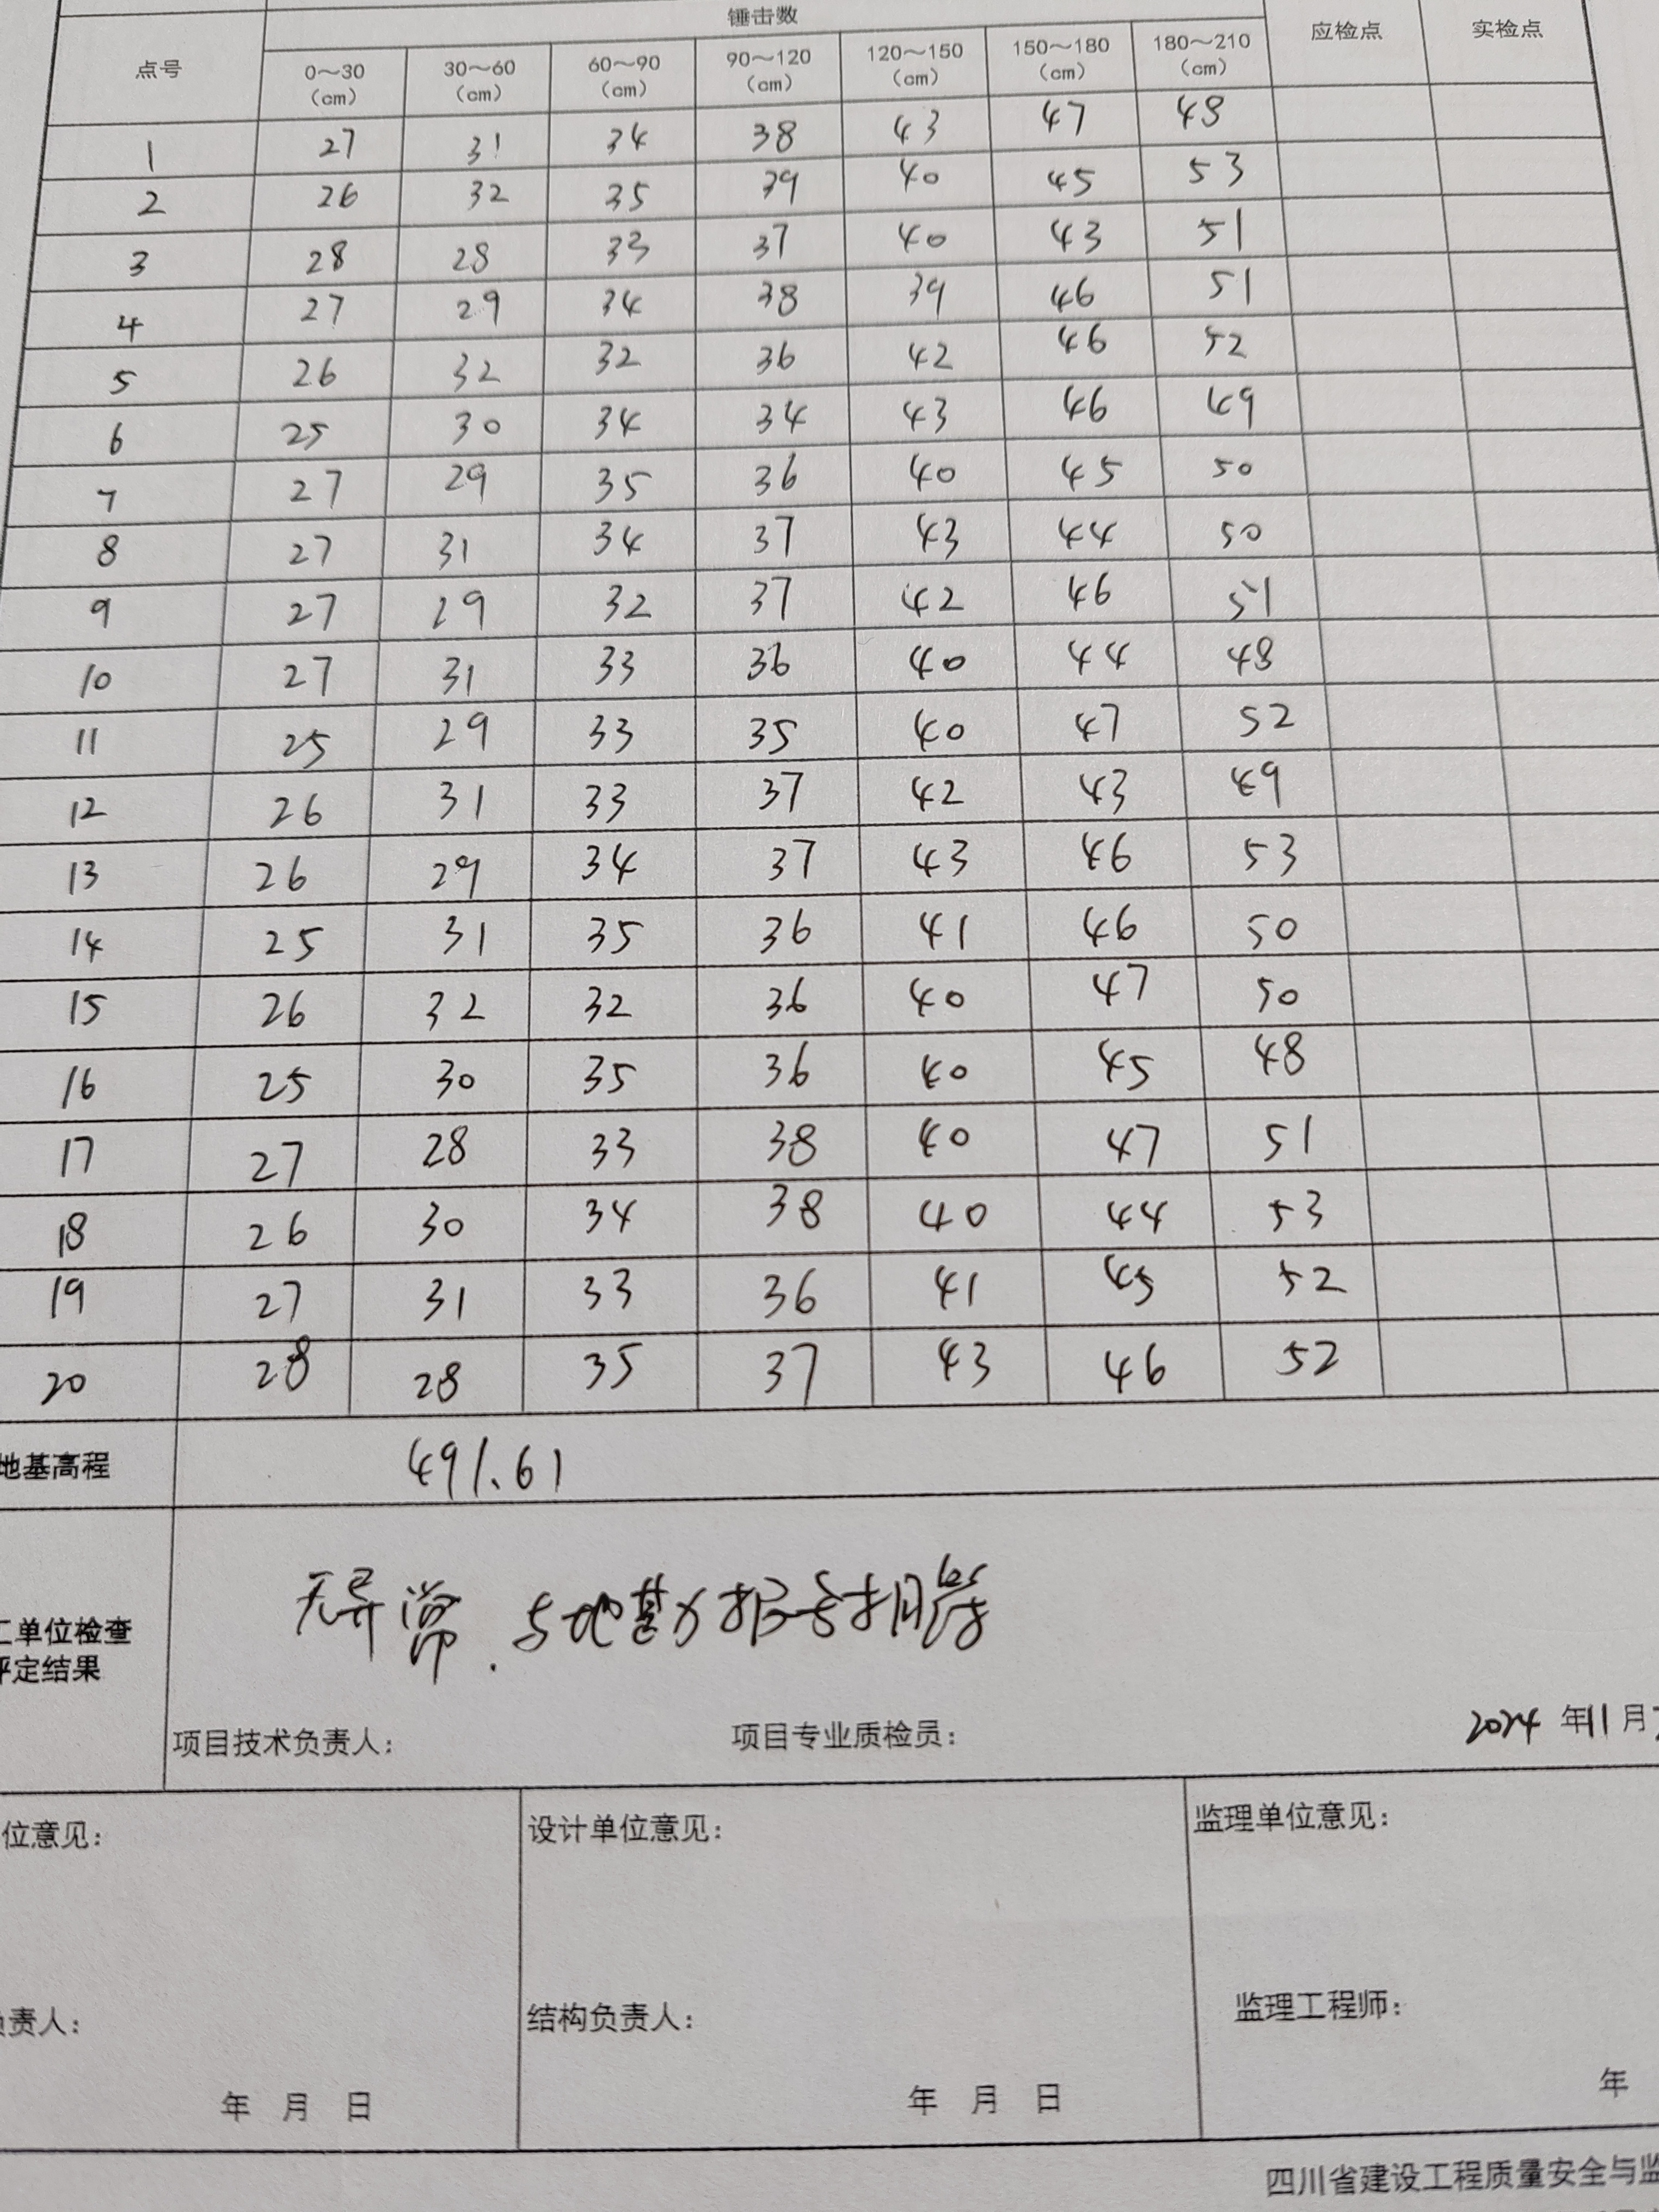 锤击数
点号 0～30 (cm) 30～60 (cm) 60～90 (cm) 90～120 (cm) 120～150 (cm) 150～180 (cm) 180～210 (cm) 应检点 实检点
1 27 31 34 38 43 47 48
2 26 32 35 39 40 45 53
3 28 28 33 37 40 43 51
4 27 29 34 38 39 46 51
5 26 32 32 36 42 46 52
6 25 30 34 34 43 46 49
7 27 29 35 36 40 45 50
8 27 31 34 37 43 44 50
9 27 29 32 37 42 46 51
10 27 31 33 36 40 44 48
11 25 29 33 35 40 47 52
12 26 31 33 37 42 43 49
13 26 29 34 37 43 46 53
14 25 31 35 36 41 46 50
15 26 32 32 36 40 47 50
16 25 30 35 36 40 45 48
17 27 28 33 38 40 47 51
18 26 30 34 38 40 44 53
19 27 31 33 36 41 45 52
20 28 28 35 37 43 46 52
地基高程 491.61
工单位检查
评定结果
无异常.与地勘报告相符
项目技术负责人： 项目专业质检员： 2024 年11月
位意见： 设计单位意见： 监理单位意见：
负责人： 结构负责人： 监理工程师：
年 月 日 年 月 日 年
四川省建设工程质量安全与监